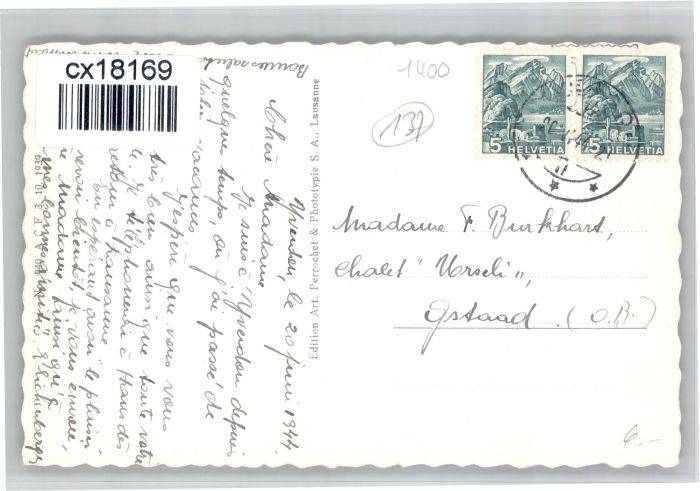 cx18169
1400
137
5 HELVETIA
5 HELVETIA
Yverdon, le 20 juin 1944.
Chère Madame
Je suis à Yverdon depuis
quelques temps, où j'ai passé de
vacances
J'espère que vous vous
très bien ainsi que toute votre
Je téléphonerai à Hans dès
retour à Lausanne
En espérant avoir le plaisir
revoir bientôt je vous envoie,
Madame, ainsi qu'à
mes bonnes
Bonnes salut
Edition Art. Perrochet & Phototypie S. A., Lausanne
A C F 3. 10. 1939
Madame F. Burkhart,
Chalet "Urseli",
Gstaad. (O.B.)
6.-